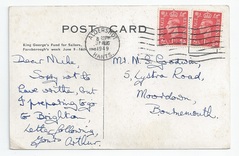 POST CARD
King George's Fund for Sailors,
ALDERSHOT
AUG
1948
HANTS
Dear Mike,
Sorry not to
have written, but
I preparing to go
to Brighton,
Letter following,
Yours Arthur.
Mr. M. S. Goodwin,
5, Lystra Road,
Moordown,
Bournemouth.